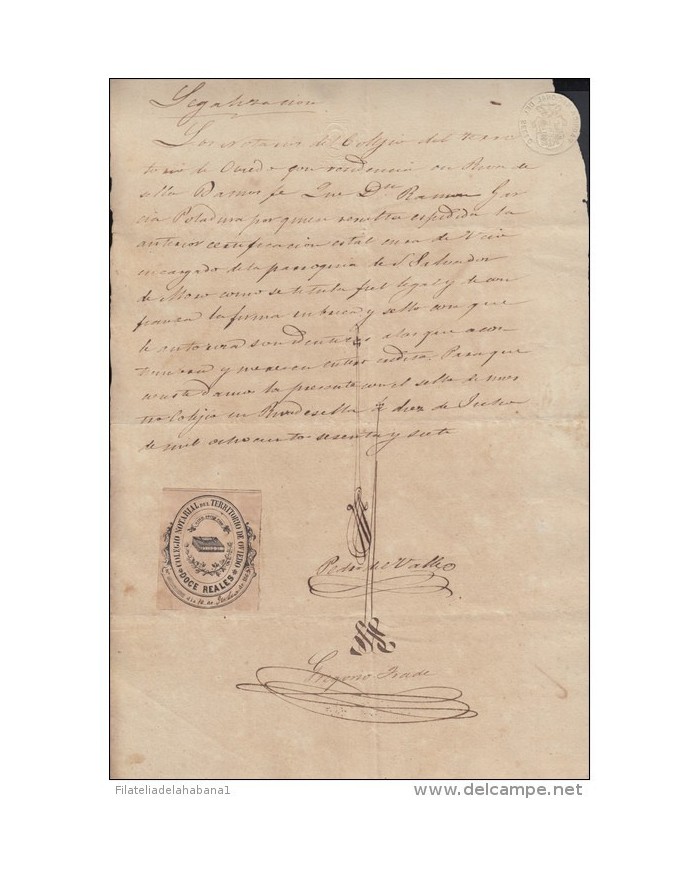 Legalizacion
Los Notarios del Colegio del terri
torio de Oviedo con residencia en Rivade
sella Damos fe Que Dn Ramon Gar
cia Poladura por quien resulta espedida la
anterior certificacion es tal cura de
encargado de la parroquia de S Salvador
de Moro como se titula fiel legal y de con
fianza la firma rubrica y sello con que
la autoriza son identicas a las que acos
tumbra y merecen entero credito. Para que
conste damos la presente con el sello de nues
tro Colegio en Rivadesella á diez de Julio
de mil ochocientos sesenta y siete
COLEGIO NOTARIAL DEL TERRITORIO DE OVIEDO
DOCE REALES
Pedro del Valle
Gregorio Frade
Filateliadelahabana1
delcampe.net